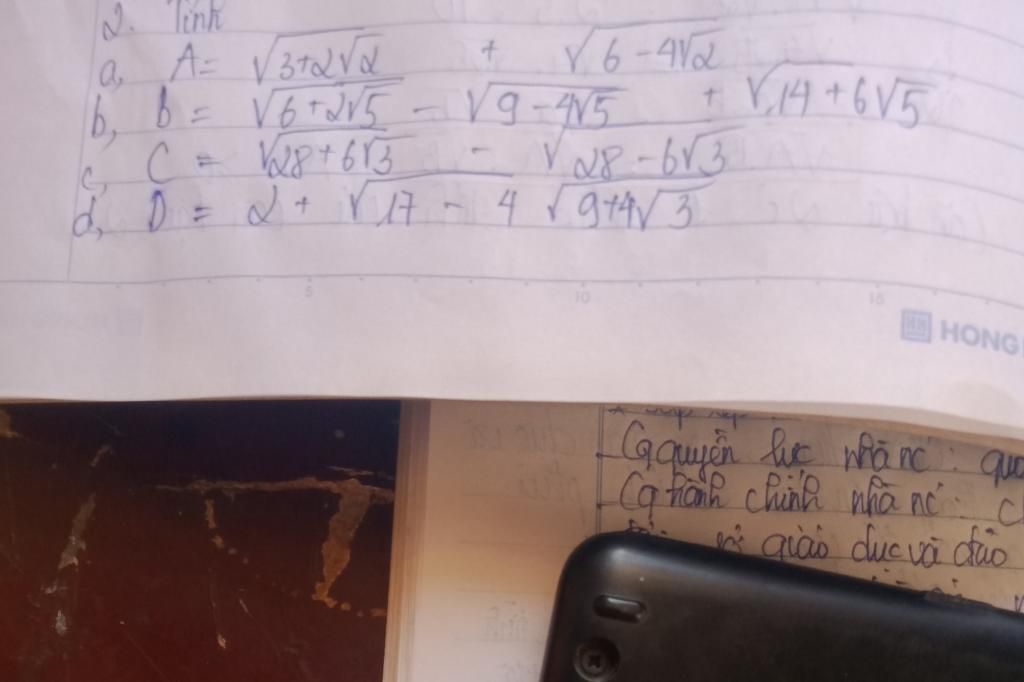 2. Tính
a, A = √3+2√2 + √6-4√2
b, B = √6+2√5 - √9-4√5 + √14+6√5
c, C = √28+6√3 - √28-6√3
d, D = 2 + √17 - 4 √9+4√3
5 10 15
HONG
Cq quyền lực nhà nc: quố
Cq hành chính nhà nc: C
giáo dục và đào